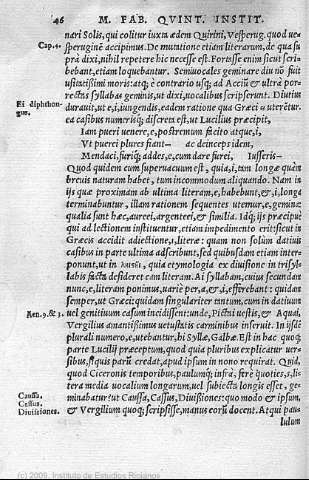 46 M. FAB. QVINT. INSTIT.
nari Solis, qui colitur iuxta ædem Quirini, Vesperug. quod ve=
Cap.4. speruginẽ accipimus. De mutatione etiam literarum, de qua su
prà dixi, nihil repetere hic necesse est. Fortasse enim sicut scri=
bebant, etiam loquebantur. Semiuocales geminare diu nõ fuit
usitatissimi moris: atq; è contrario usq; ad Accium & ultrà por=
Ei diphthon= rectas syllabas geminis, ut dixi, uocalibus scripserunt. Diutius
gus. durauit, ut e, i, iungendis, eadem ratione qua Græci ει uterẽtur.
ea casibus numerisq; discreta est, ut Lucilius præcipit,
Iam pueri uenere, e, postremum facito atque, i,
Vt puerei plures fiant— ac deinceps idem,
Mendaci, furiq; addes, e, cum dare furei, Iusseris—
Quod quidem cum superuacuum est, quia, i, tam longæ quàm
breuis naturam habet, tum incommodum aliquando. Nam in
ijs quæ proximam ab ultima literam, e, habebunt, & i, longa
terminabuntur, illam rationem sequentes utemur, e, gemina:
qualia sunt hæc, aurei, argenteei, & similia. Idq; ijs præcipuè
qui ad lectionem instituentur, etiam impedimento erit: sicut in
Græcis accidit adiectione, ι, literæ: quam non solùm datiuis
casibus in parte ultima adscribunt, sed quibusdam etiam inter=
ponunt, ut in quia etymologia ex diuisione in trisyl=
labis facta desideret eam literam. Ai syllabam, cuius secundam
nunc, e, literam ponimus, uariè per, a, & i, efferebant: quidam
semper, ut Græci: quidam singulariter tantùm, cum in datiuum
Aen.9.& 3. uel genitiuum casum incidissent: unde, Pictai uestis, & Aquai,
Vergilius amantissimus uetustatis carminibus inseruit. In ijsdẽ
plurali numero, e, utebantur, hi Syllæ, Galbæ. Est in hac quoq;
parte Lucilij præceptum, quod quia pluribus explicatur uer=
sibus, si quis parũ credat, apud ipsum in nono requirat. Quid,
quod Ciceronis temporibus, paulumq; infrà, ferè quoties, s, li=
tera media uocalium longarum, uel subiecta longis esset, ge=
Caussa. minabatur? ut Caussa, Cassus, Diuissiones: quo modo & ipsum,
Cassus.
Diuissiones. & Vergilium quoq; scripsisse, manus eorũ docent. Atqui pau=
lulum
(c) 2009, Instituto de Estudios Riojanos